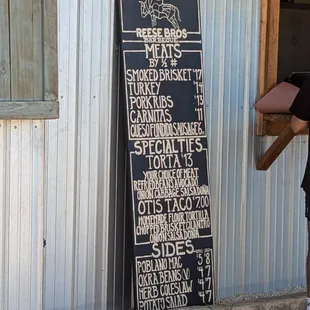 REESE BROS
BARBECUE
MEATS
BY ½ #
SMOKED BRISKET 17
TURKEY 14
PORK RIBS 13
CARNITAS 11
QUESO FUNDIDO SAUSAGE
SPECIALTIES
TORTA 13
YOUR CHOICE OF MEAT
REFRIED BEANS AVOCADO
ONION CABBAGE SALSA DONA
OTIS TACO 7.00
HOMEMADE FLOUR TORTILLA
CHOPPED BRISKET CILANTRO
ONION SALSA DONA
SIDES
POBLANO MAC 5 8
OKRA BEANS (V) 4 7
HERB COLESLAW 4 7
POTATO SALAD 4 7